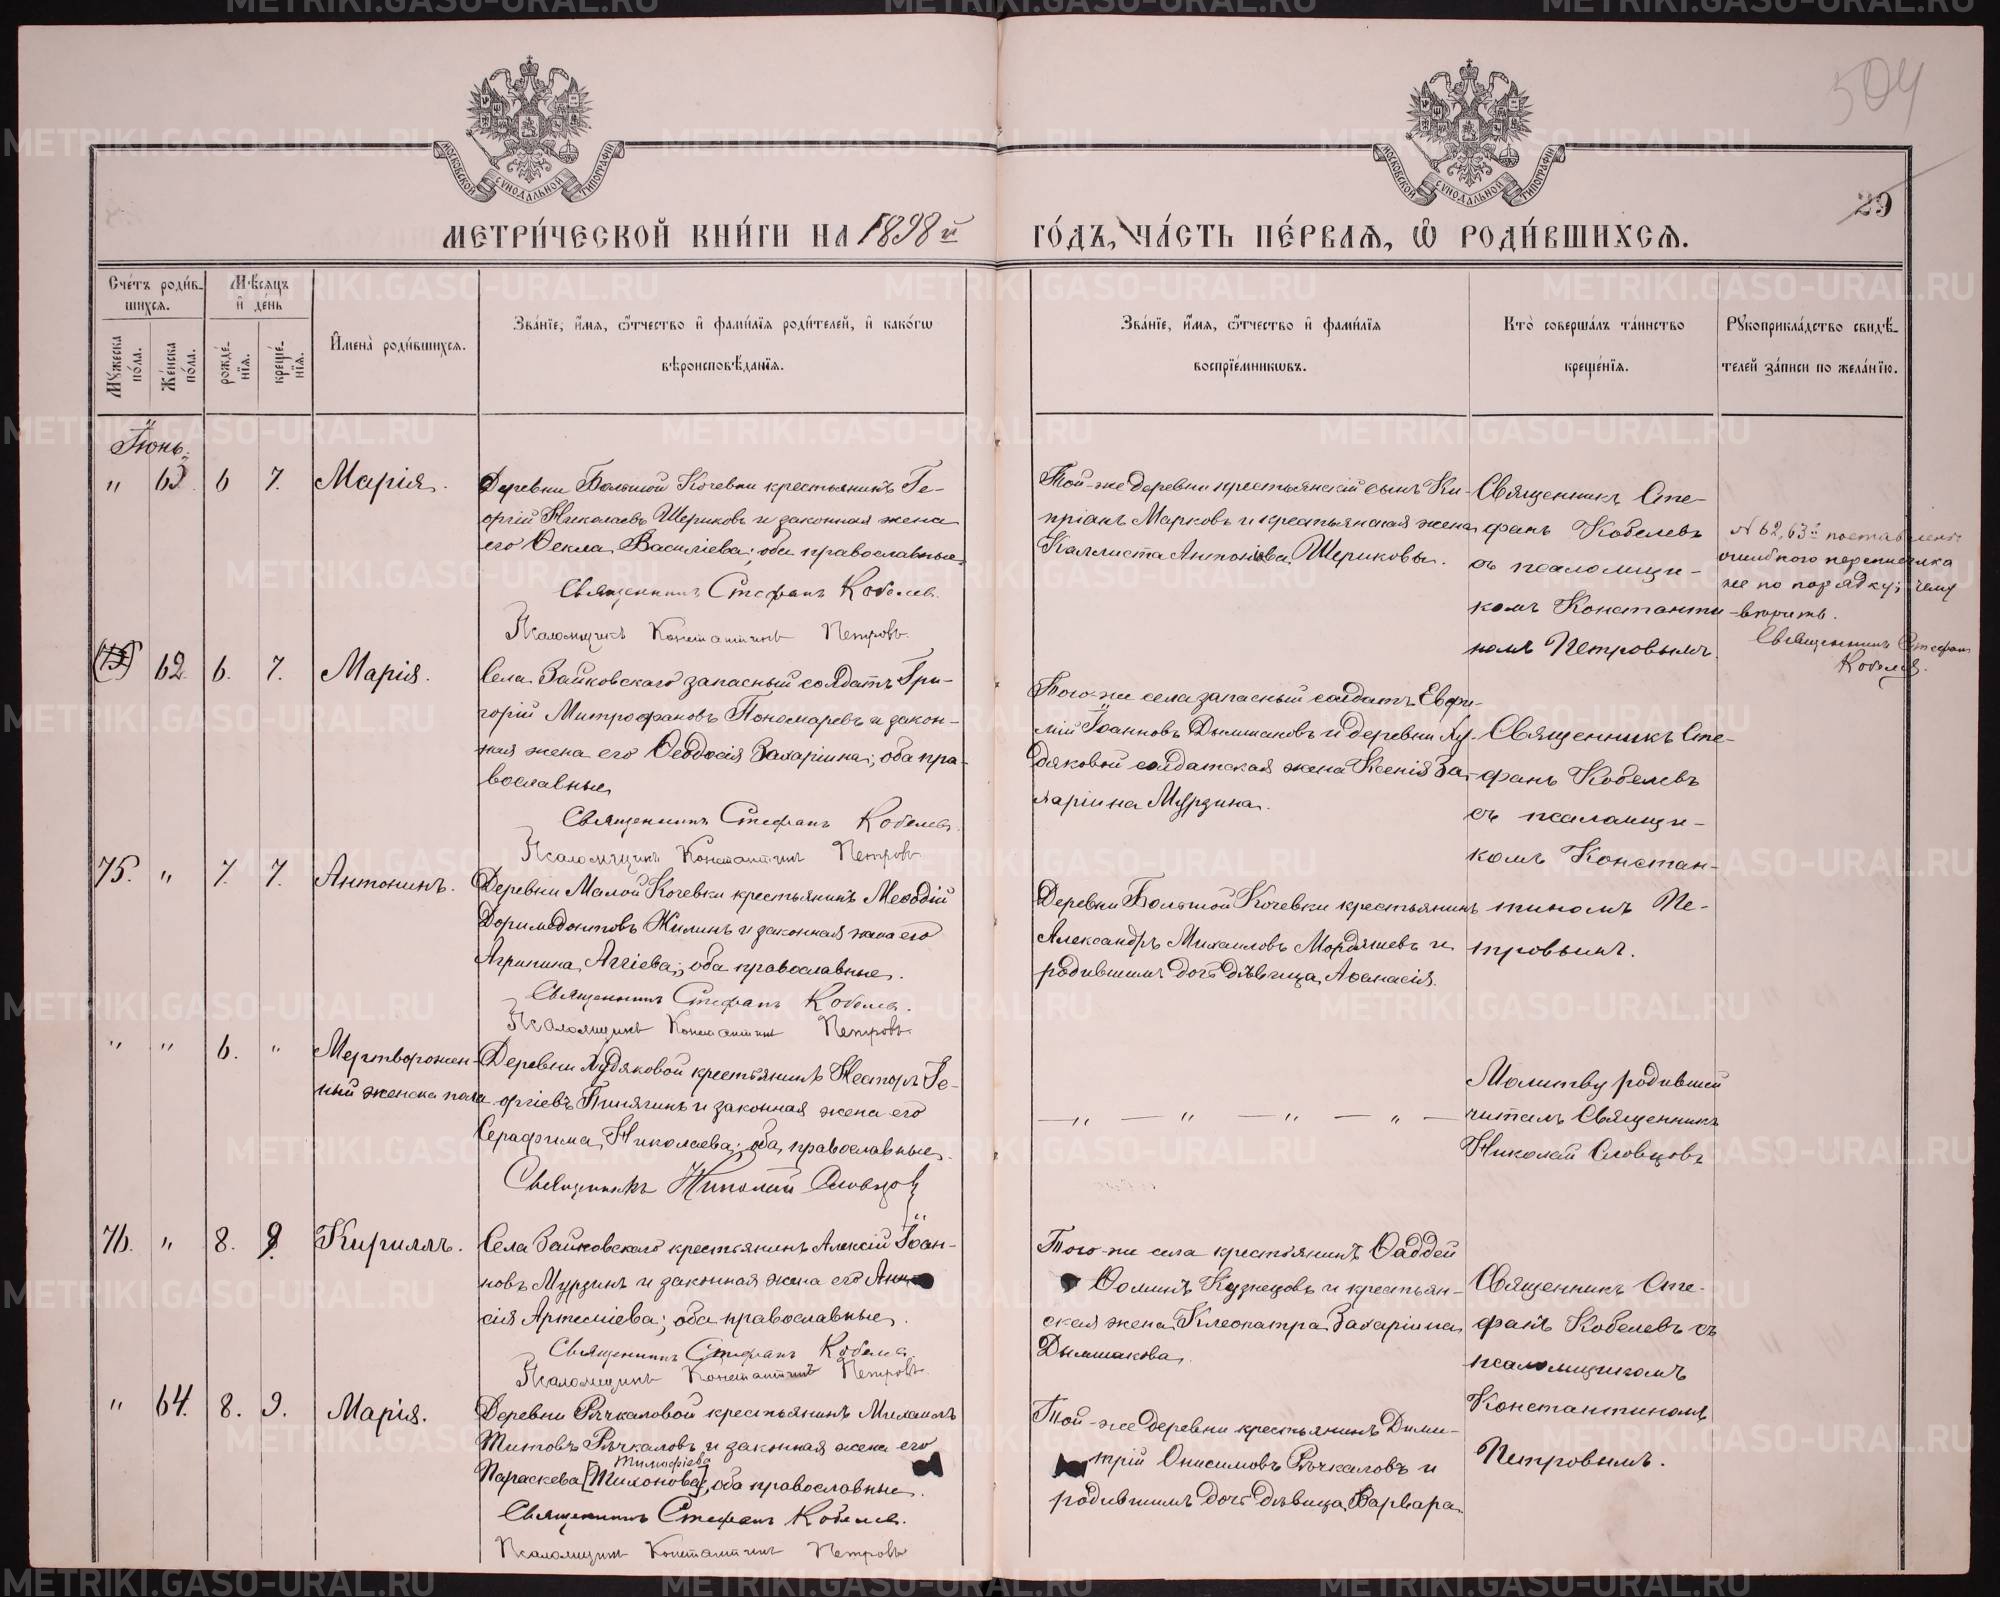 504
МОСКОВСКОЙ СѴНОДАЛЬНОЙ ТИПОГРАФІИ
МОСКОВСКОЙ СѴНОДАЛЬНОЙ ТИПОГРАФІИ
29
МЕТРИ́ЧЕСКОЙ КНИ́ГИ НА 1898й ГО́ДЪ, ЧА́СТЬ ПЕ́РВАЯ, Ѡ РОДИ́ВШИХСЯ.
Сче́тъ роди́в-
шихся.
Мѣ́сяцъ
и҆ де́нь
Мꙋ́жеска по́ла.
Же́нска по́ла.
рожде́нїя.
креще́нїя.
И҆мена̀ роди́вшихся.
Зва́нїе, и҆́мя, ѻ҆́тчество и҆ фами́лїя роди́телей, и҆ како́гѡ
вѣроисповѣ́данїя.
Зва́нїе, и҆́мя, ѻ҆́тчество и҆ фами́лїя
воспрїе́мникѡвъ.
Кто̀ соверша́лъ та́инство
креще́нїя.
Рꙋкоприкла́дство свидѣ́-
телей за́писи по жела́нїю.
Іюнь.
" 63 6 7. Марія.
Деревни Большой Кочевки крестьянинъ Ге-
оргій Николаевъ Шериковъ и законная жена
его Ѳекла Василіева; оба православные.
Священникъ Стефанъ Кобелевъ.
Псаломщикъ Константинъ Петровъ.
Той-же деревни крестьянскій сынъ Ки-
пріанъ Марковъ и крестьянская жена
Каллиста Антоніева Шериковы.
Священникъ Сте-
фанъ Кобелевъ
съ псаломщи-
комъ Константи-
номъ Петровымъ.
№ 62, 63й поставлены
ошибкою переписчика
не по порядку; чему
вторить.
Священникъ Стефанъ
Кобелевъ.
62. 6. 7. Марія.
Села Зайковскаго запасный солдатъ Гри-
горій Митрофановъ Пономаревъ и закон-
ная жена его Ѳеодосія Захаріина; оба пра-
вославные
Священникъ Стефанъ Кобелевъ.
Псаломщикъ Константинъ Петровъ
Того-же села запасный солдатъ Евфи-
мій Іоанновъ Дымшаковъ и деревни Ху-
дяковой солдатская жена Ксенія За-
харіина Мурзина.
Священникъ Сте-
фанъ Кобелевъ
съ псаломщи-
комъ Констан-
тиномъ Пе-
тровымъ.
75. " 7. 7. Антонинъ.
Деревни Малой Кочевки крестьянинъ Меѳодій
Доримедонтовъ Жилинъ и законная жена его
Агрипина Аггіева; оба православные.
Священникъ Стефанъ Кобелевъ.
Псаломщикъ Константинъ Петровъ.
Деревни Большой Кочевки крестьянинъ
Александръ Михаиловъ Мордяшевъ и
родившимъ дочь дѣвица Аѳанасія.
" " 6. " Мертворожен-
ный женска пола
Деревни Худяковой крестьянинъ Несторъ Ге-
оргіевъ Пинягинъ и законная жена его
Серафима Николаева; оба православные.
Священникъ Николай Словцовъ
— " — " — " — " —
Молитву родившей
читалъ Священникъ
Николай Словцовъ
76. " 8. 9. Кириллъ.
Села Зайковскаго крестьянинъ Алексій Іоан-
новъ Мурзинъ и законная жена его Ани-
сія Артеміева; оба православные.
Священникъ Стефанъ Кобелевъ.
Псаломщикъ Константинъ Петровъ.
Того-же села крестьянинъ Ѳаддей
Ѳоминъ Кузнецовъ и крестьян-
ская жена Клеопатра Захаріина
Дымшакова.
Священникъ Сте-
фанъ Кобелевъ съ
псаломщикомъ
Константиномъ
Петровымъ.
" 64. 8. 9. Марія.
Деревни Речкаловой крестьянинъ Михаилъ
Титовъ Речкаловъ и законная жена его
Тимофіева
Параскева [Тихонова], оба православные.
Священникъ Стефанъ Кобелевъ.
Псаломщикъ Константинъ Петровъ
Той-же деревни крестьянинъ Дими-
трій Онисимовъ Речкаловъ и
родившимъ дочь дѣвица Варвара.
METRIKI.GASO-URAL.RU